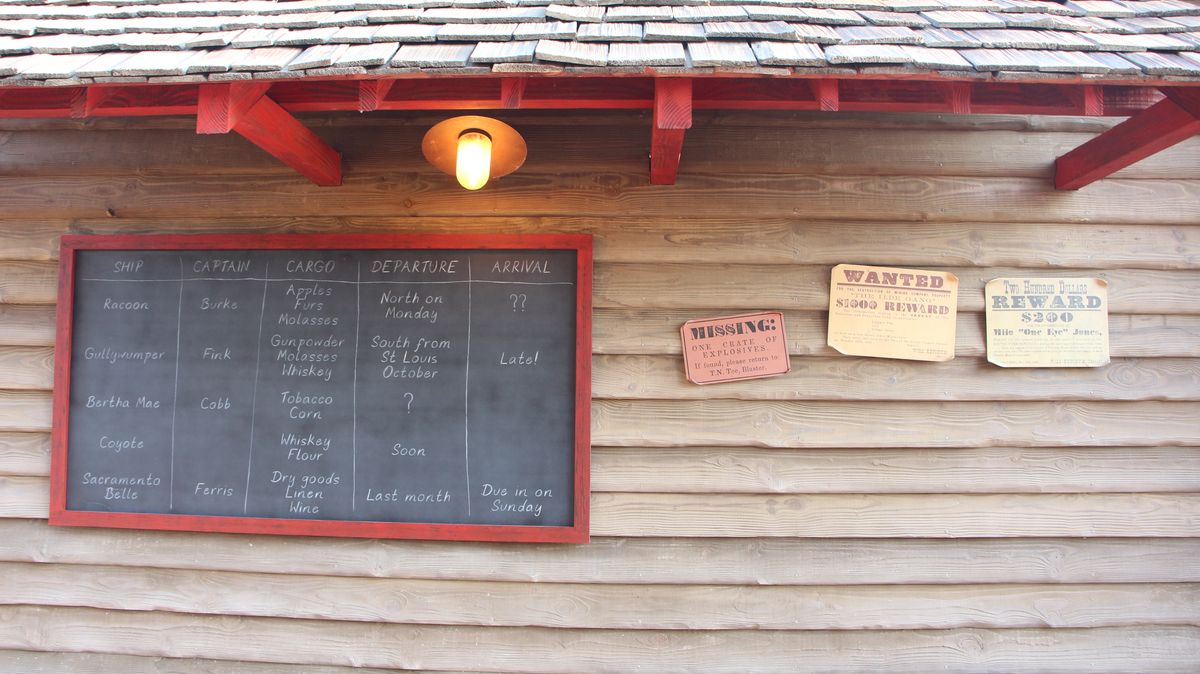 SHIP CAPTAIN CARGO DEPARTURE ARRIVAL
Racoon Burke Apples Furs Molasses North on Monday ??
Gullywumper Fink Gunpowder Molasses Whiskey South from St Louis October Late!
Bertha Mae Cobb Tobacco Corn ?
Coyote Whiskey Flour Soon
Sacramento Belle Ferris Dry goods Linen Wine Last month Due in on Sunday
MISSING:
ONE CRATE OF
EXPLOSIVES.
If found, please return to:
T.N. Tee, Blaster.
WANTED
FOR THE DESTRUCTION OF MINING COMPANY PROPERTY
$1000 REWARD
Two Hundred Dollars
REWARD
$200
Milo "One Eye" Jones,